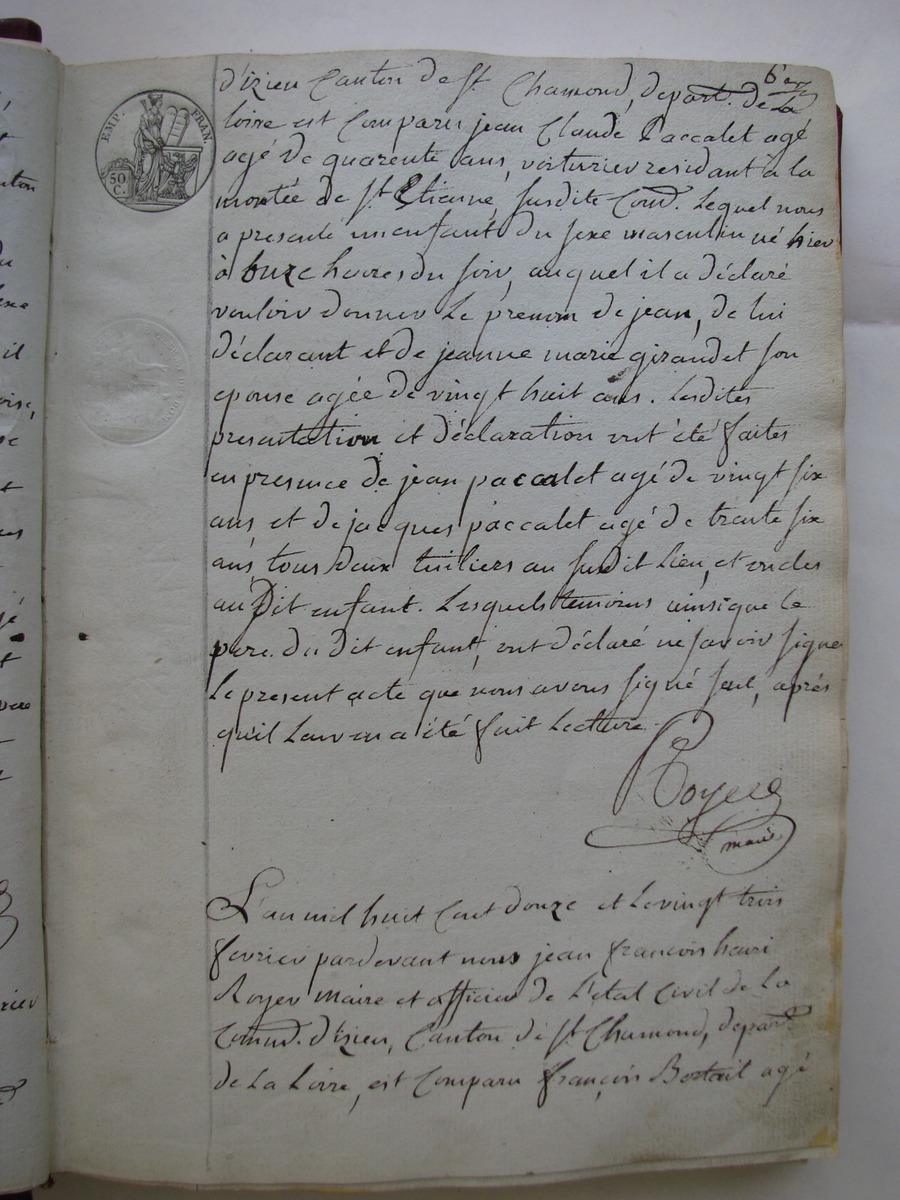 6.e
EMP. FRAN.
50 C.
d'izieu Canton de St Chamond, depart. de La
loire est Comparu jean Claude Paccalet agé
agé de quarente ans, voiturier residant a la
montée de St Etienne, susdite Com.e Lequel nous
a presenté un enfant du sexe masculin né hier
à onze heures du soir, auquel il a déclaré
vouloir donner Le prenom de jean, de lui
déclarant et de jeanne marie giraudet son
epouse agée de vingt huit ans. Lesdites
presentation et déclaration ont été faites
en presence de jean paccalet agé de vingt six
ans, et de jacques paccalet agé de trente six
ans, tous deux tuiliers au susdit Lieu, et oncles
au Dit enfant. Lesquels temoins ainsi que Le
pere du dit enfant, ont déclaré ne savoir signer
Le present acte que nous avons signé seul, après
qu'il Leur en a été fait Lecture.
Royer
maire
L'an mil huit Cent douze et Le vingt trois
fevrier pardevant nous jean françois henri
Royer Maire et officier de L'etat Civil de La
Comm.e d'izieu, Canton de St Chamond, depart.
de La Loire, est Comparu françois agé